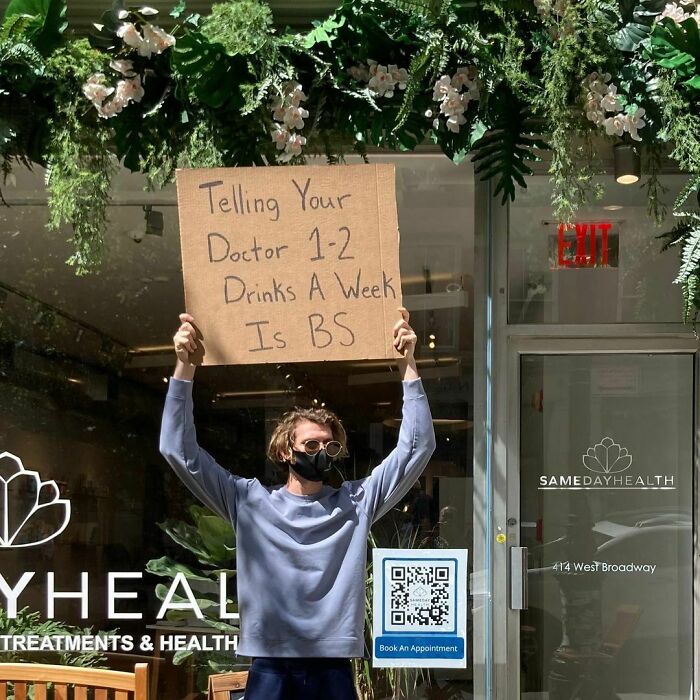 Telling Your
Doctor 1-2
Drinks A Week
Is BS
EXIT
SAMEDAYHEALTH
414 West Broadway
YHEAL
TREATMENTS & HEALTH
SAMEDAY
Book An Appointment